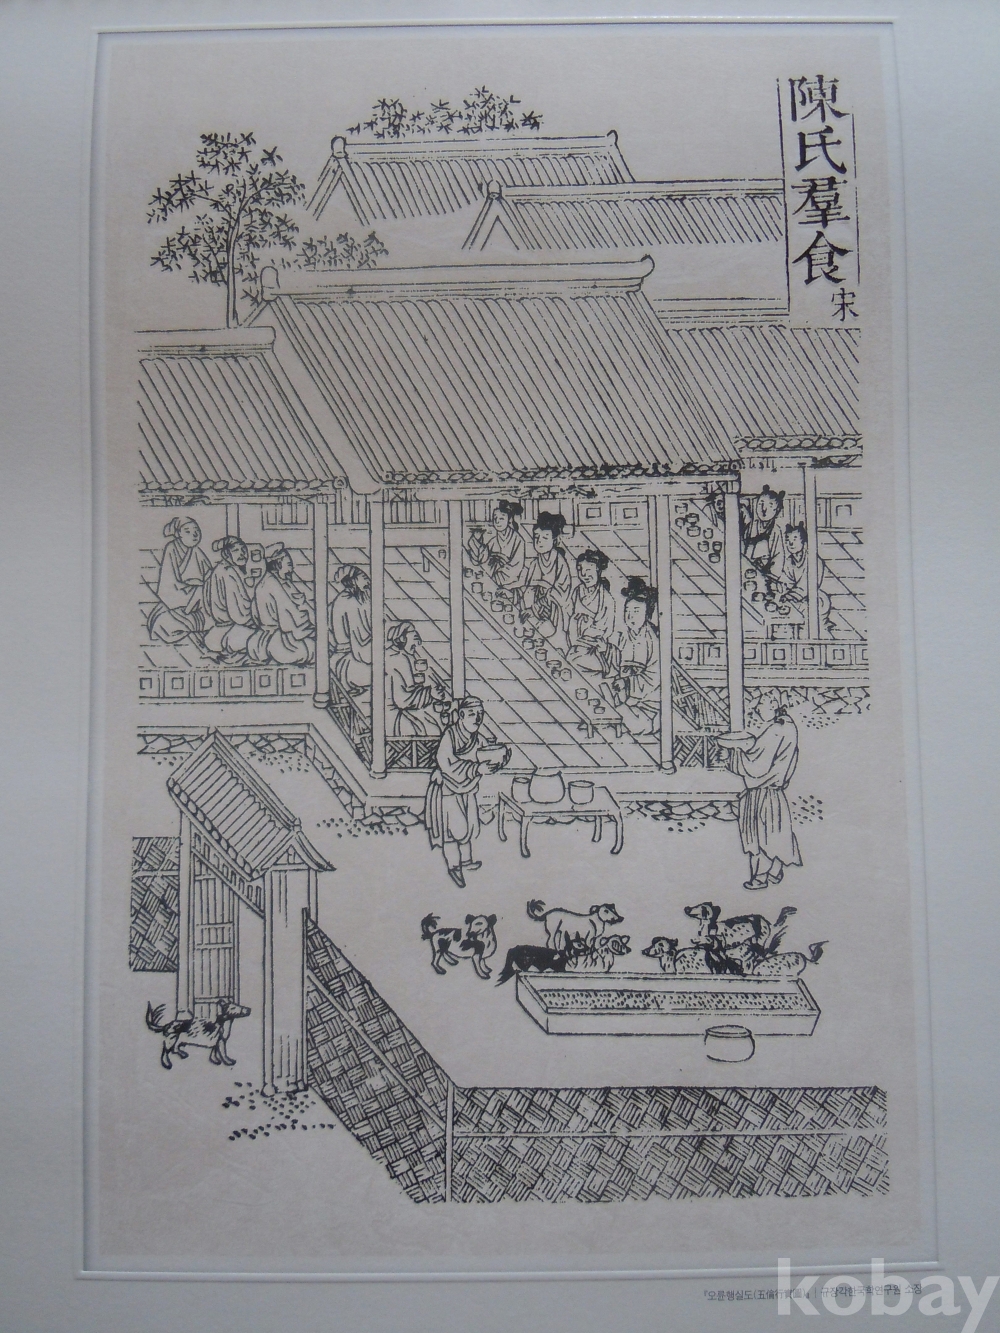 陳氏羣食
宋
『오륜행실도(五倫行實圖)』 | 규장각한국학연구원 소장
kobay